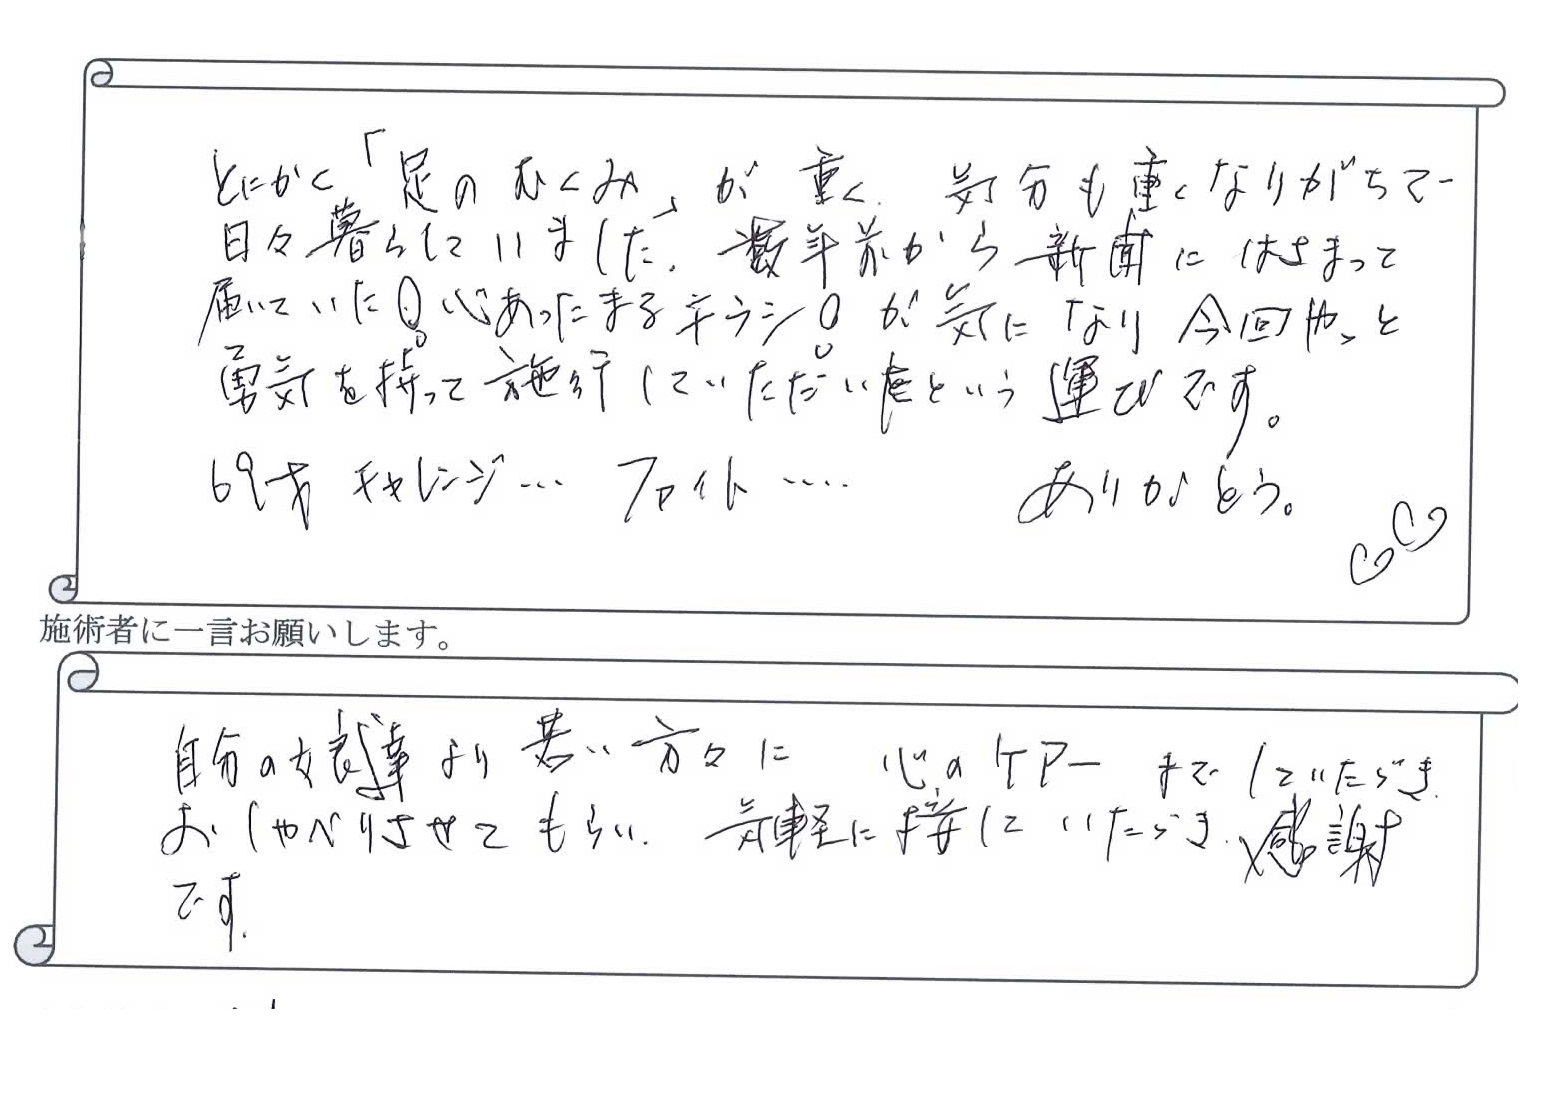 とにかく「足のむくみ」が重く、気分も重くなりがちで
日々暮らしていました、数年前から新聞にはさまって
届いていた!心あったまるチラシ!が気になり今回やっと
勇気を持って施行していただいたという運びです。
69才 チャレンジ… ファイト…‥ ありがとう。♡♡
施術者に一言お願いします。
自分の娘達より若い方々に 心のケアーまでしていただき、
おしゃべりさせてもらい、気軽に接していただき、感謝
です。